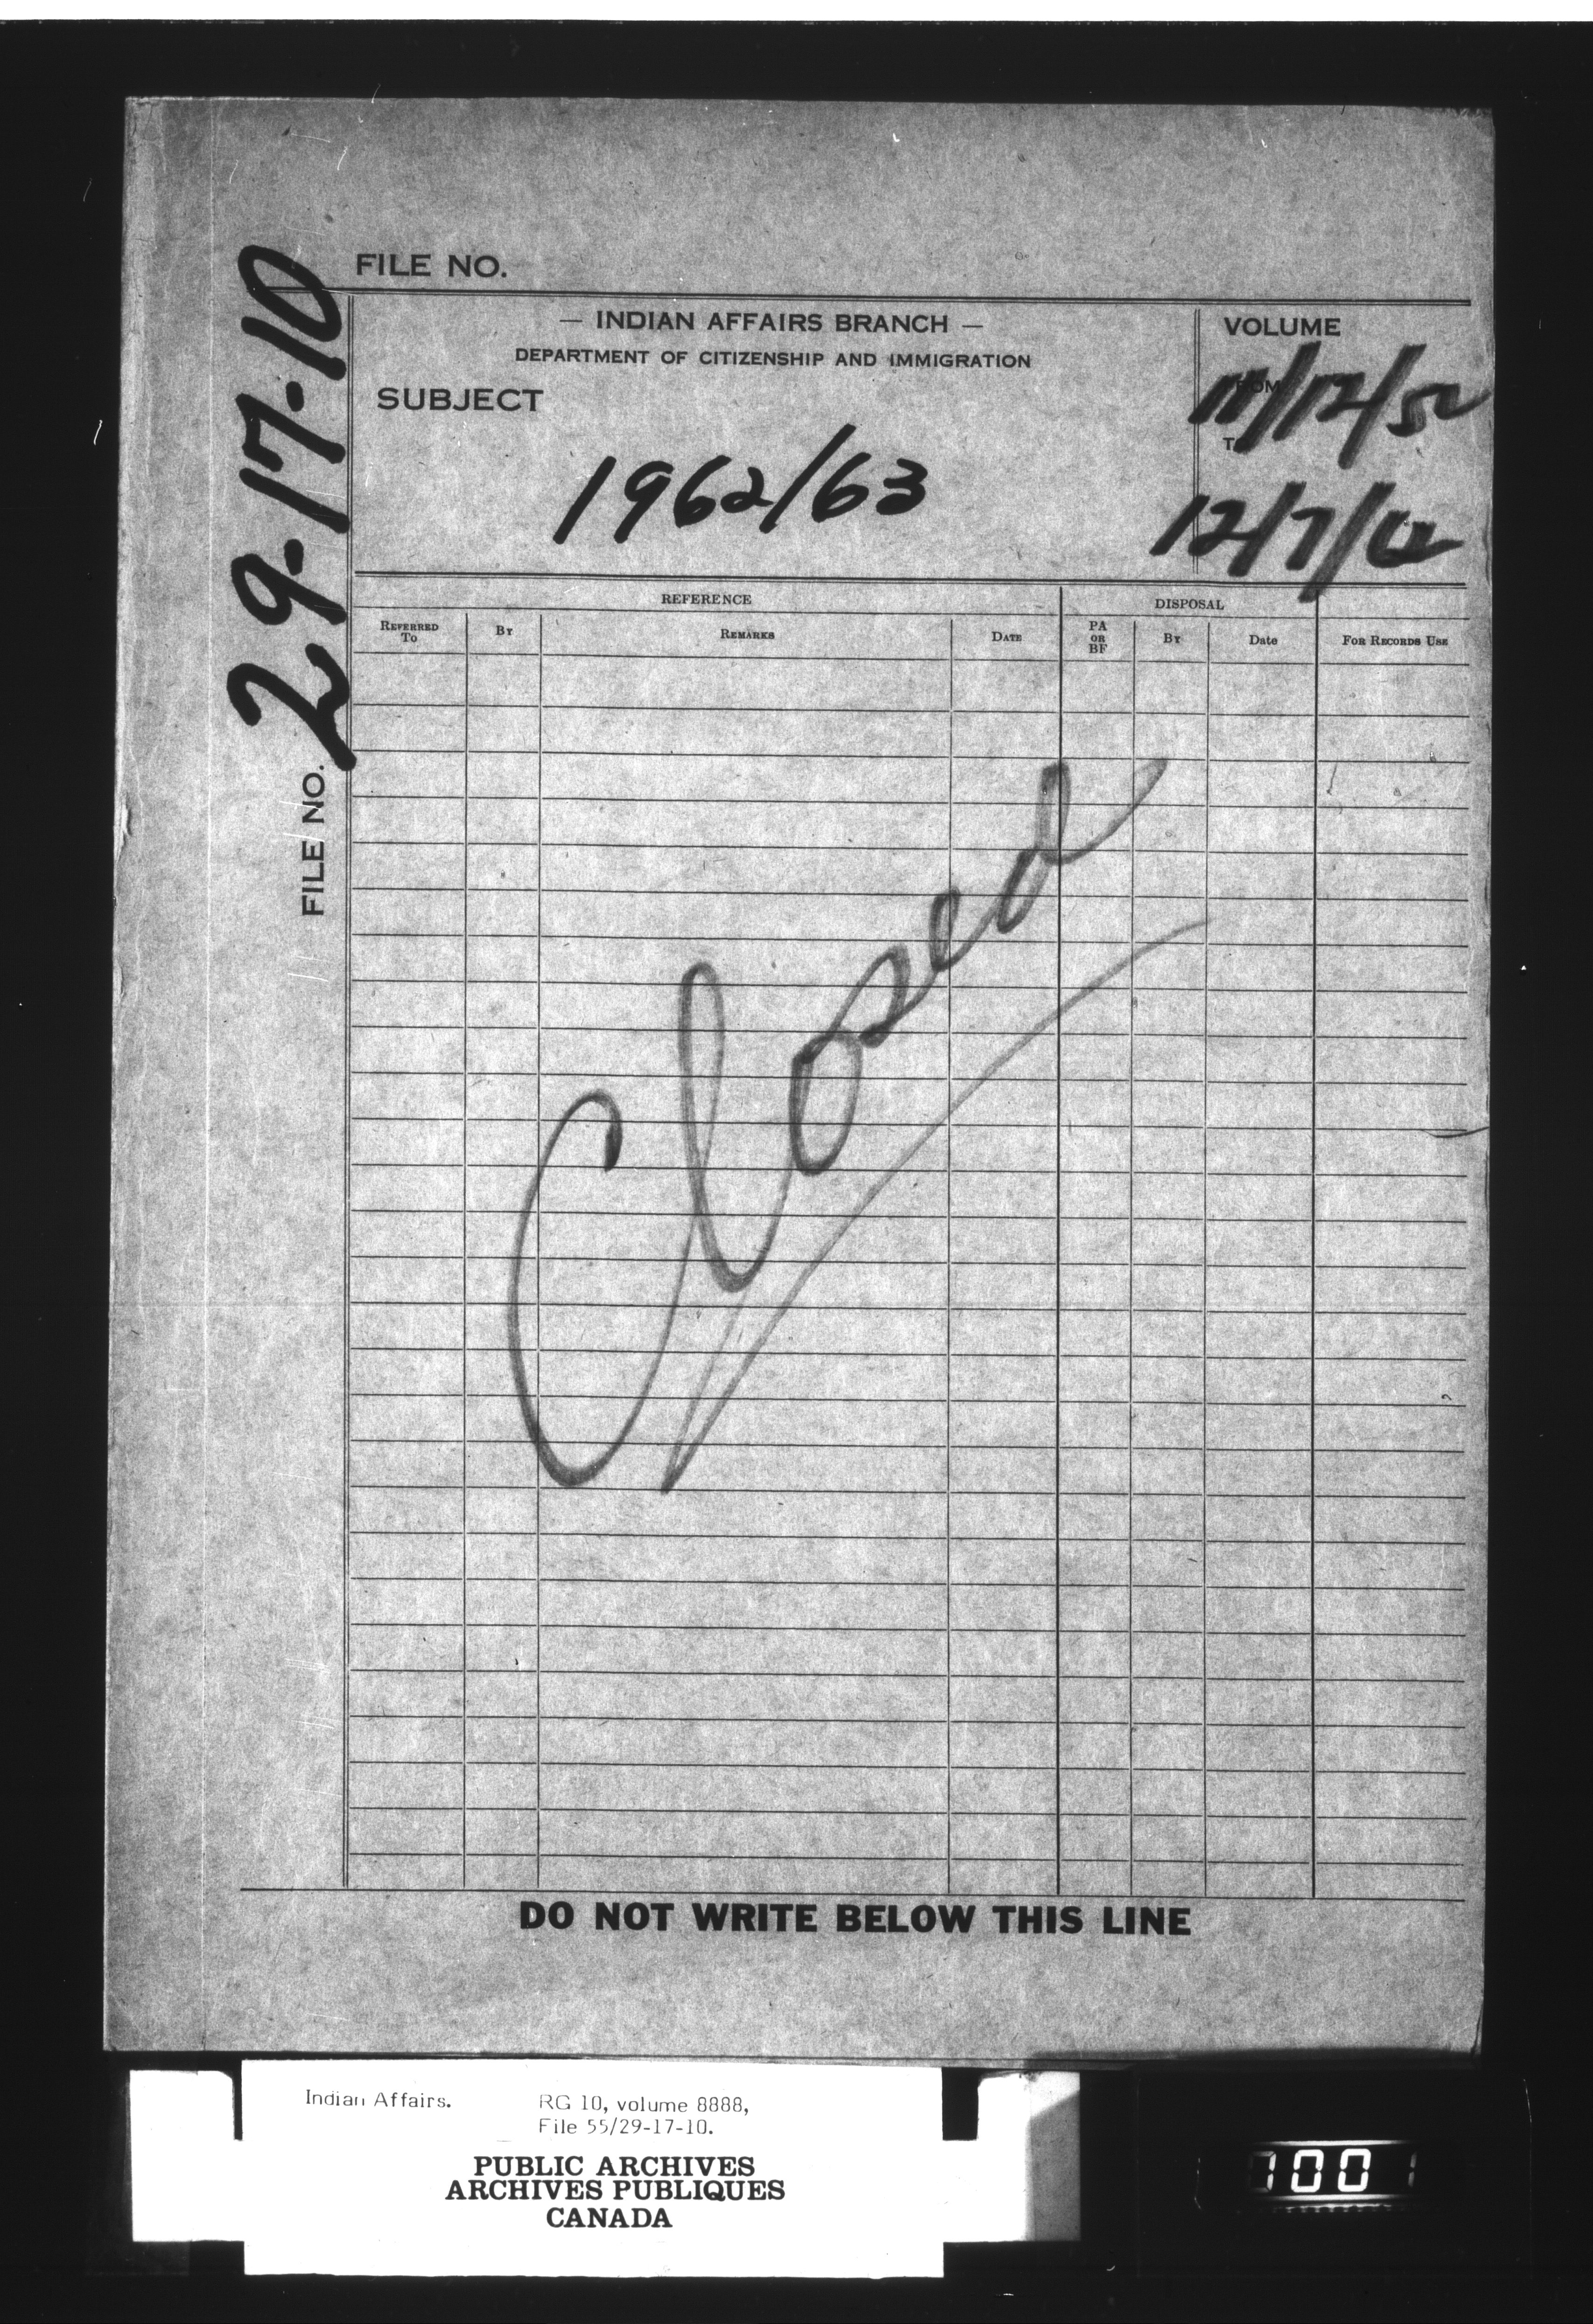 FILE NO.
— INDIAN AFFAIRS BRANCH —
DEPARTMENT OF CITIZENSHIP AND IMMIGRATION
SUBJECT
1962/63
VOLUME
FROM
12/7/
FILE NO. 29-17-10
REFERENCE
DISPOSAL
REFERRED TO
BY
REMARKS
DATE
PA OR BF
BY
Date
FOR RECORDS USE
Closed
DO NOT WRITE BELOW THIS LINE
Indian Affairs.
RG 10, volume 8888,
File 55/29-17-10.
PUBLIC ARCHIVES
ARCHIVES PUBLIQUES
CANADA